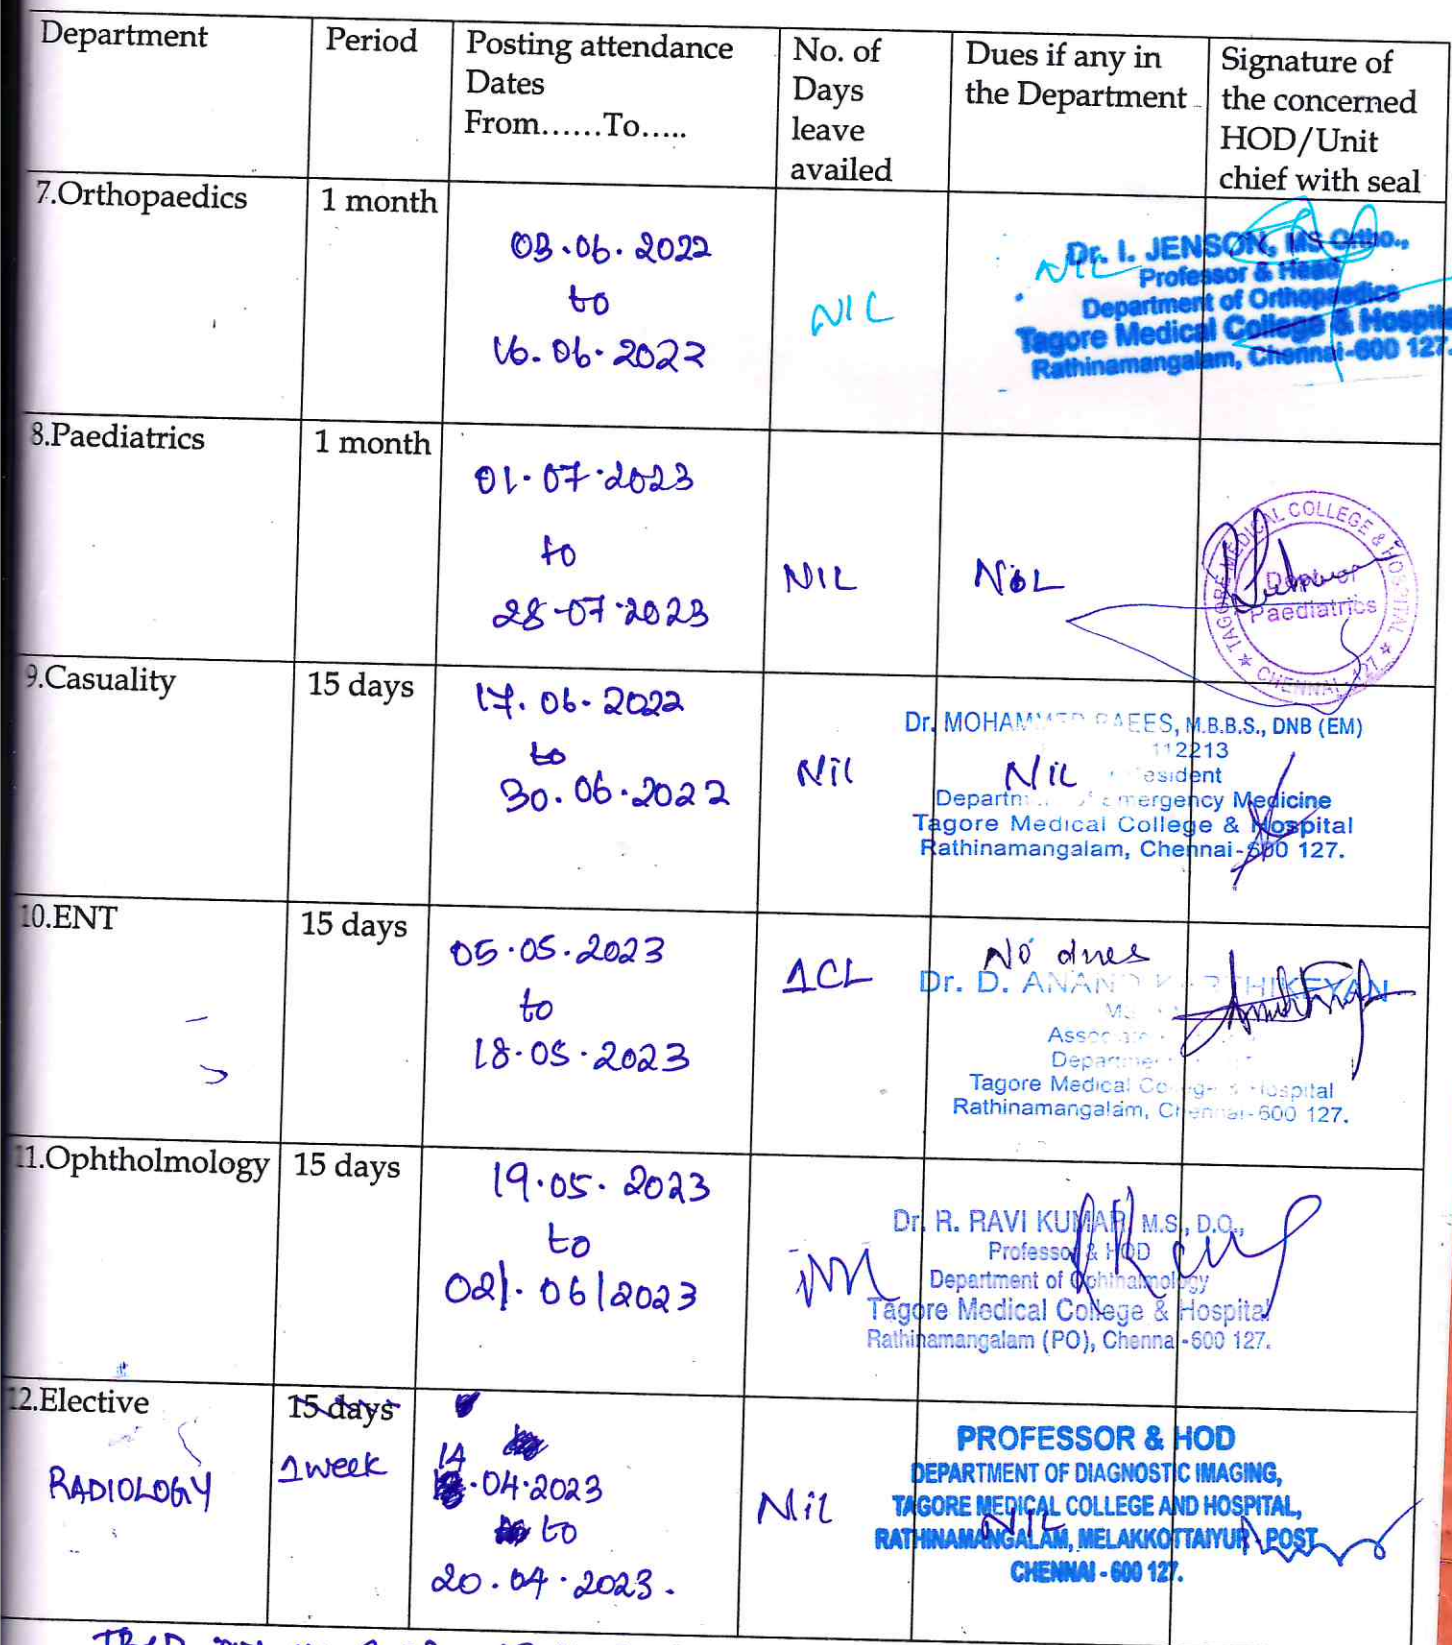 Department Period Posting attendance Dates From......To..... No. of Days leave availed Dues if any in the Department Signature of the concerned HOD/Unit chief with seal
7.Orthopaedics 1 month
03.06.2022
to
16.06.2022
NIL
NIL
Dr. I. JENSON, MS Ortho.,
Professor & Head
Department of Orthopaedics
Tagore Medical College & Hospital
Rathinamangalam, Chennai-600 127.
8.Paediatrics 1 month
01.07.2023
to
28.07.2023
NIL
NIL
TAGORE MEDICAL COLLEGE & HOSPITAL
Dept of
Paediatrics
CHENNAI-127
9.Casuality 15 days
17.06.2022
to
30.06.2022
Nil
Nil
Dr. MOHAMMED RAEES, M.B.B.S., DNB (EM)
112213
Resident
Department of Emergency Medicine
Tagore Medical College & Hospital
Rathinamangalam, Chennai-600 127.
10.ENT 15 days
05.05.2023
to
18.05.2023
1CL
No dues
Dr. D. ANAND KARTHIKEYAN
Tagore Medical College & Hospital
Rathinamangalam, Chennai-600 127.
11.Ophtholmology 15 days
19.05.2023
to
02/.06/2023
Dr. R. RAVI KUMAR, M.S., D.O.,
Professor & HOD
Department of Ophthalmology
Tagore Medical College & Hospital
Rathinamangalam (PO), Chennai-600 127.
12.Elective 15 days
RADIOLOGY
1 week
14.04.2023
to
20.04.2023.
Nil
NIL
PROFESSOR & HOD
DEPARTMENT OF DIAGNOSTIC IMAGING,
TAGORE MEDICAL COLLEGE AND HOSPITAL,
RATHINAMANGALAM, MELAKKOTTAIYUR POST,
CHENNAI - 600 127.